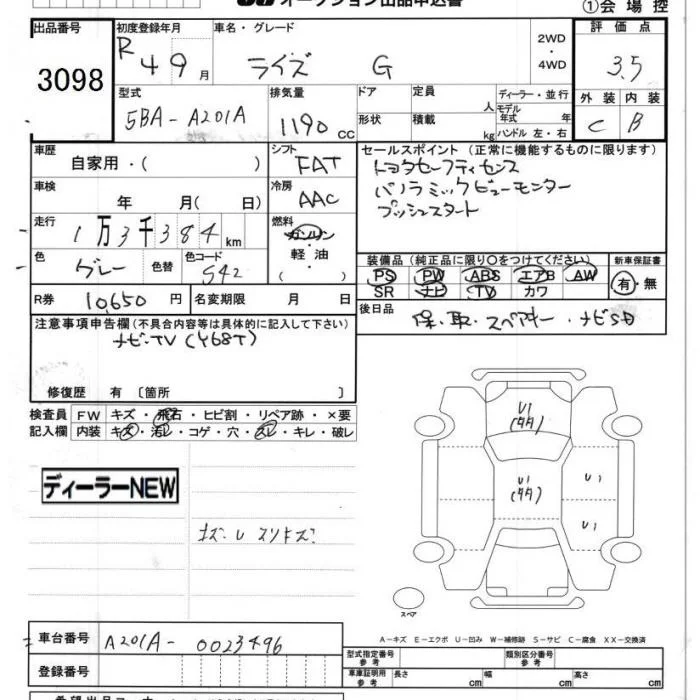 オークション出品申込書
①会場控
出品番号
3098
初度登録年月
R 4 9 月
車名・グレード
ライズ G
2WD
・
4WD
評価点
3.5
型式
5BA-A201A
排気量
1190 cc
ドア
形状
定員
人
積載
kg
ディーラー・並行
モデル年式 年
ハンドル 左・右
外装
C
内装
B
車歴
自家用・( )
シフト
FAT
セールスポイント (正常に機能するものに限ります)
トヨタセーフティセンス
パノラミックビューモニター
プッシュスタート
車検
年 月( 日)
冷房
AAC
走行
1万3千384km
燃料
ガソリン
・
軽油
・
( )
色
グレー
色替
色コード
S42
装備品 (純正品に限り○をつけてください)
PS PW ABS エアB AW
SR ナビ TV カワ
新車保証書
有・無
R券
10,650 円
名変期限 月 日
後日品
保・取・スペアキー・ナビSD
注意事項申告欄 (不具合内容等は具体的に記入して下さい)
ナビ・TV (Y68T)
修復歴 有 〔箇所 〕
検査員
記入欄
FW キズ・飛石・ヒビ割・リペア跡・×要
内装 キズ・汚レ・コゲ・穴・スレ・キレ・破レ
ディーラーNEW
U1
U1
U1
U1
スペア
A-キズ E-エクボ U-凹み W-補修跡 S-サビ C-腐食 XX-交換済
車台番号
A201A-0023496
登録番号
型式指定番号
参考
類別区分番号
参考
車庫証明用
参考
長さ cm
幅 cm
高さ cm